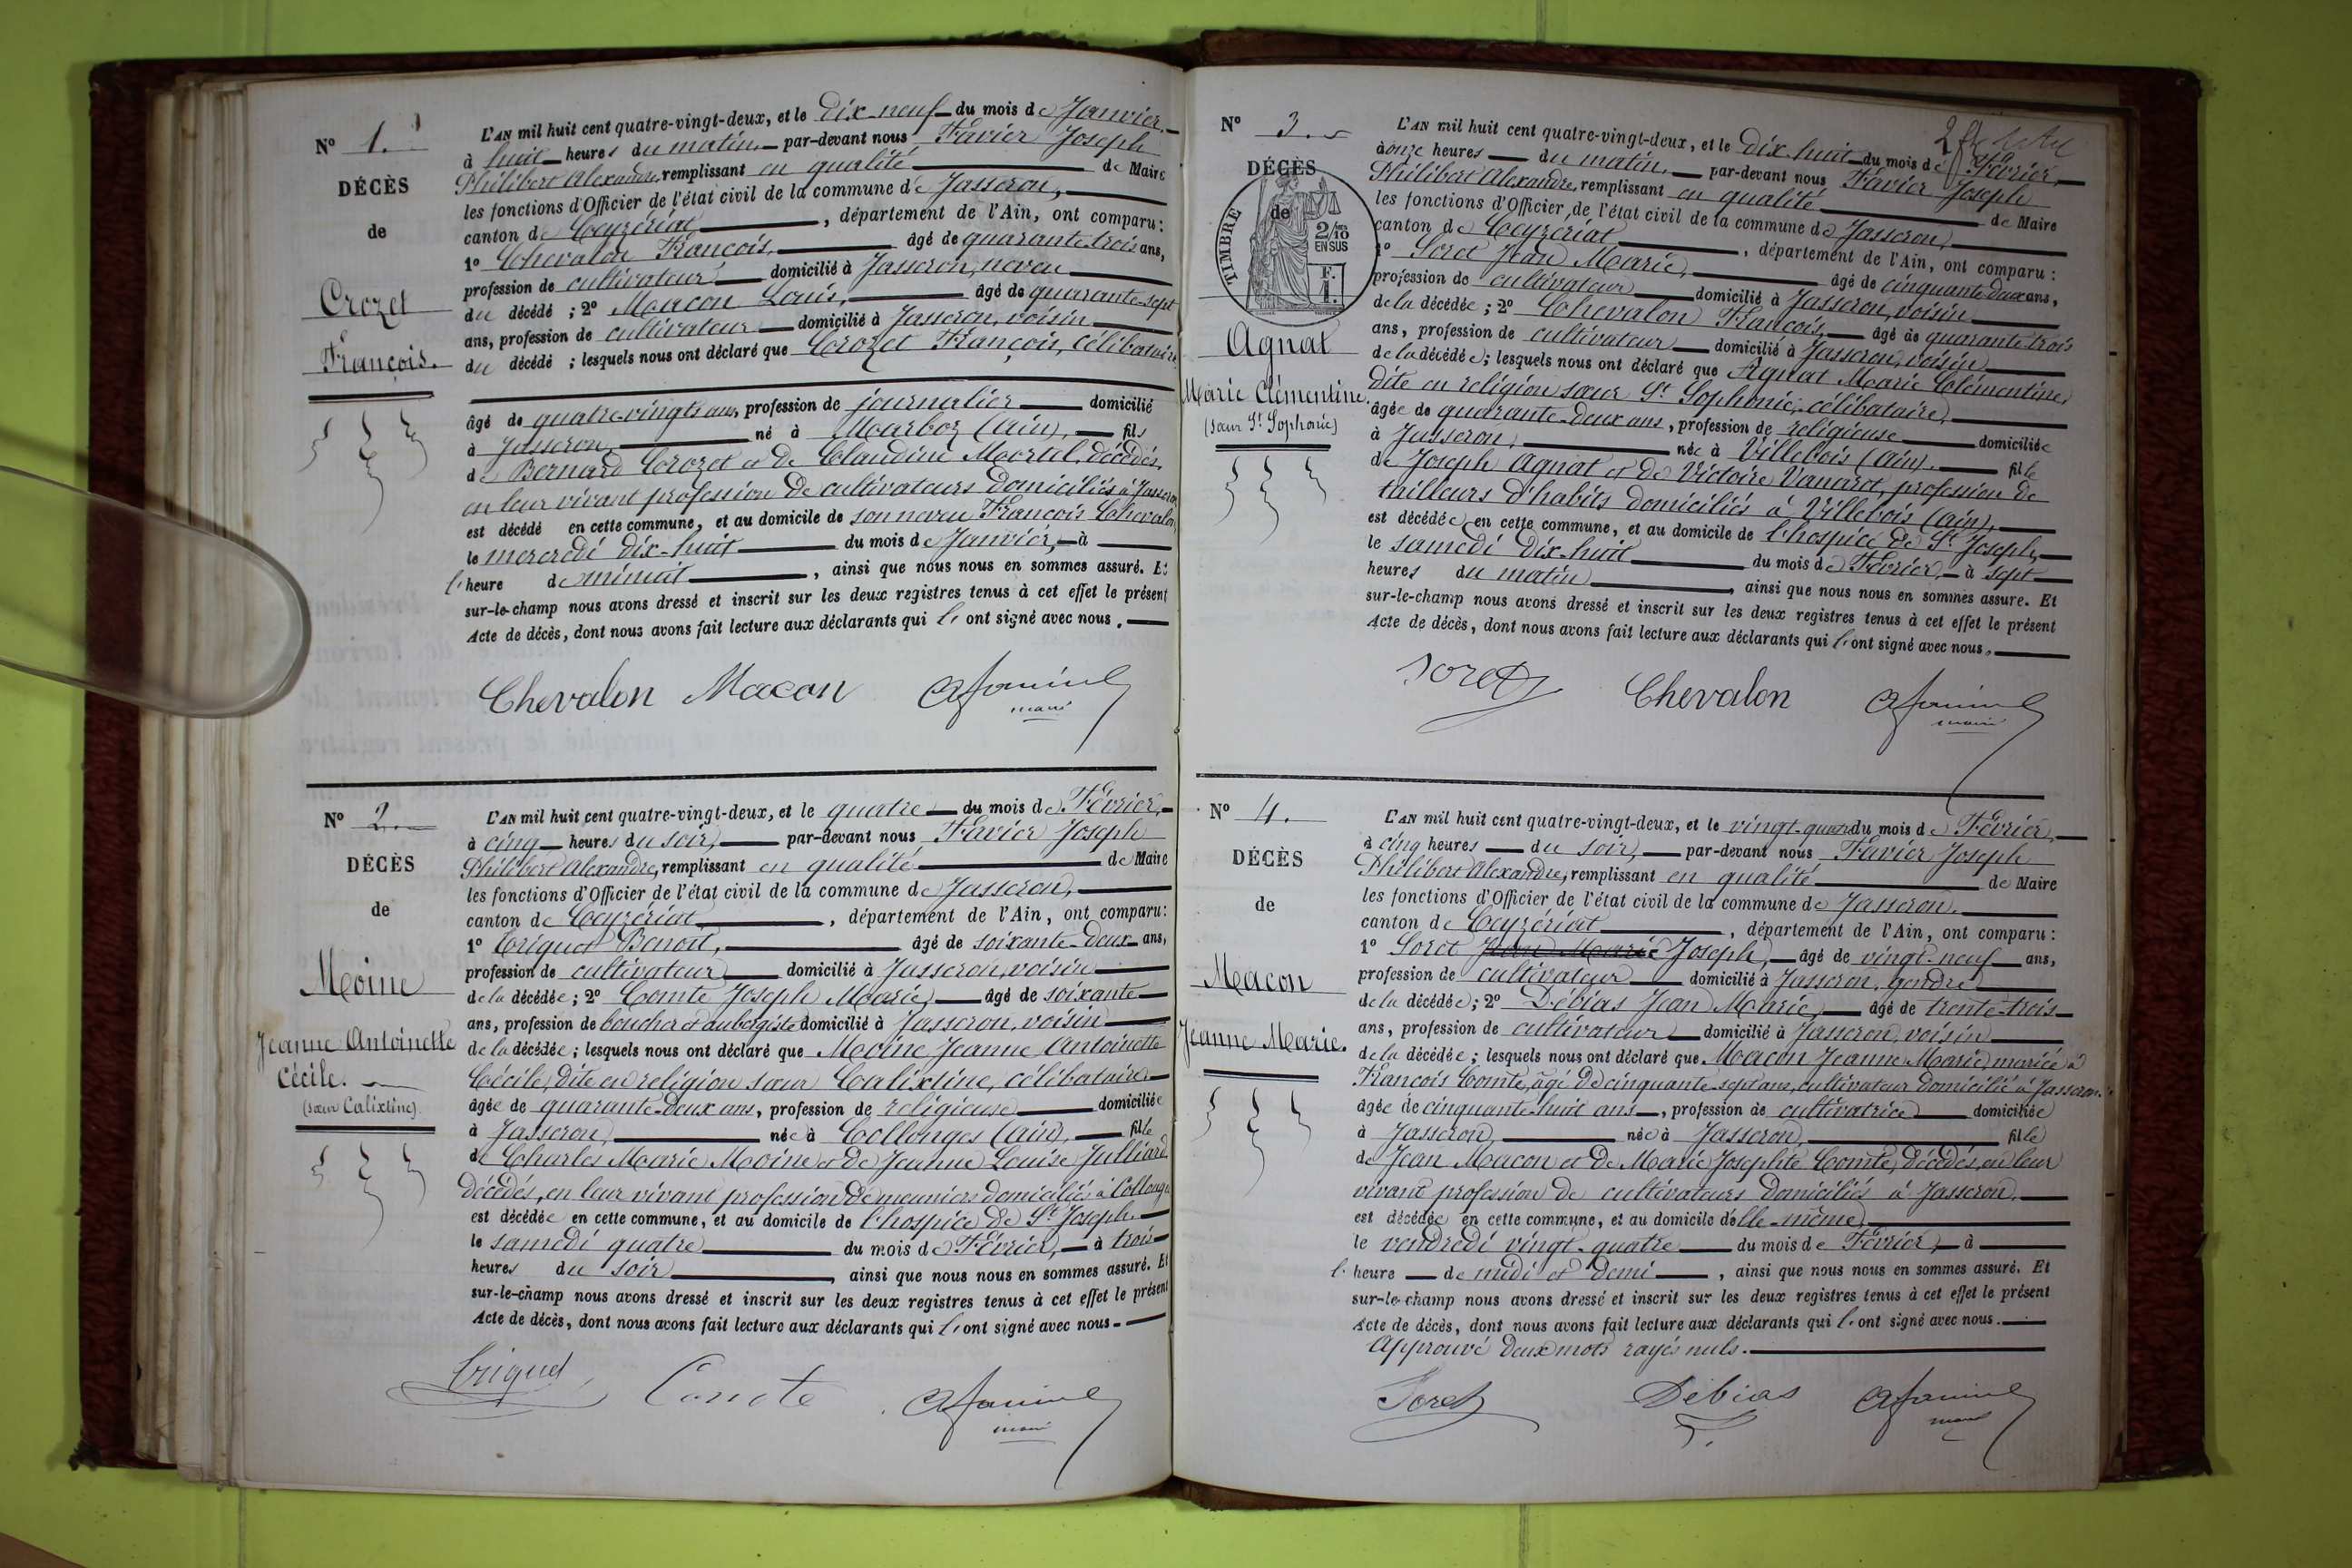 Nº 1.
DÉCÈS
de
Crozet
François.
L'AN mil huit cent quatre-vingt-deux, et le Dix-neuf du mois de Janvier,
à huit heures du matin, par-devant nous Favier Joseph
Philibert Alexandre, remplissant en qualité de Maire
les fonctions d'Officier de l'état civil de la commune de Jasseron,
canton de Ceyzériat, département de l'Ain, ont comparu :
1º Chevalon François, âgé de quarante-trois ans,
profession de cultivateur domicilié à Jasseron, neveu
du décédé ; 2º Macon Louis, âgé de quarante-sept
ans, profession de cultivateur domicilié à Jasseron, voisin
du décédé ; lesquels nous ont déclaré que Crozet François, célibataire,
âgé de quatre-vingts ans, profession de journalier domicilié
à Jasseron, né à Marboz (ain), fils
de Bernard Crozet et de Claudine Mortel, décédés,
en leur vivant profession de cultivateurs domiciliés à Jasseron
est décédé en cette commune, et au domicile de son neveu François Chevalon,
le mercredi dix-huit du mois de Janvier, à
l'heure de minuit, ainsi que nous nous en sommes assuré. Et
sur-le-champ nous avons dressé et inscrit sur les deux registres tenus à cet effet le présent
Acte de décès, dont nous avons fait lecture aux déclarants qui l'ont signé avec nous.
Chevalon Macon
maire
Nº 2.
DÉCÈS
de
Moine
Jeanne Antoinette
Cécile.
(sœur Calixtine).
L'AN mil huit cent quatre-vingt-deux, et le quatre du mois de Février,
à cinq heures du soir, par-devant nous Favier Joseph
Philibert Alexandre, remplissant en qualité de Maire
les fonctions d'Officier de l'état civil de la commune de Jasseron,
canton de Ceyzériat, département de l'Ain, ont comparu :
1º Criquet Benoit, âgé de soixante-deux ans,
profession de cultivateur domicilié à Jasseron, voisin
de la décédée ; 2º Comte Joseph Marie, âgé de soixante
ans, profession de boucher et aubergiste domicilié à Jasseron, voisin
de la décédée ; lesquels nous ont déclaré que Moine Jeanne Antoinette
Cécile, dite en religion sœur Calixtine, célibataire,
âgée de quarante-deux ans, profession de religieuse domiciliée
à Jasseron, née à Collonges (ain), fille
de Charles Marie Moine et de Jeanne Louise Julliard
décédés, en leur vivant profession de meuniers domiciliés à Collonges
est décédée en cette commune, et au domicile de l'hospice de St Joseph,
le samedi quatre du mois de Février, à trois
heures du soir, ainsi que nous nous en sommes assuré. Et
sur-le-champ nous avons dressé et inscrit sur les deux registres tenus à cet effet le présent
Acte de décès, dont nous avons fait lecture aux déclarants qui l'ont signé avec nous.
Criquet Comte
maire
Nº 3.
DÉCÈS
de
TIMBRE
2/10
EN SUS
F.
1.
Agnat
Marie Clémentine.
(sœur St Sophonie)
L'AN mil huit cent quatre-vingt-deux, et le dix-huit du mois de Février,
à onze heures du matin, par-devant nous Favier Joseph
Philibert Alexandre, remplissant en qualité de Maire
les fonctions d'Officier de l'état civil de la commune de Jasseron,
canton de Ceyzériat, département de l'Ain, ont comparu :
1º Soret Jean Marie, âgé de cinquante-deux ans,
profession de cultivateur domicilié à Jasseron, voisin
de la décédée ; 2º Chevalon François, âgé de quarante-trois
ans, profession de cultivateur domicilié à Jasseron, voisin
de la décédée ; lesquels nous ont déclaré que Agnat Marie Clémentine,
dite en religion sœur St Sophonie, célibataire,
âgée de quarante-deux ans, profession de religieuse domiciliée
à Jasseron, née à Villebois (ain), fille
de Joseph Agnat et de Victoire Vanarot, profession de
tailleurs d'habits domiciliés à Villebois (ain),
est décédée en cette commune, et au domicile de l'hospice de St Joseph,
le samedi dix-huit du mois de Février, à sept
heures du matin, ainsi que nous nous en sommes assuré. Et
sur-le-champ nous avons dressé et inscrit sur les deux registres tenus à cet effet le présent
Acte de décès, dont nous avons fait lecture aux déclarants qui l'ont signé avec nous.
Soret Chevalon
maire
Nº 4.
DÉCÈS
de
Macon
Jeanne Marie.
L'AN mil huit cent quatre-vingt-deux, et le vingt-quatre du mois de Février,
à cinq heures du soir, par-devant nous Favier Joseph
Philibert Alexandre, remplissant en qualité de Maire
les fonctions d'Officier de l'état civil de la commune de Jasseron,
canton de Ceyzériat, département de l'Ain, ont comparu :
1º Soret Jean Marie Joseph, âgé de vingt-neuf ans,
profession de cultivateur domicilié à Jasseron, gendre
de la décédée ; 2º Débias Jean Marie, âgé de trente-trois
ans, profession de cultivateur domicilié à Jasseron, voisin
de la décédée ; lesquels nous ont déclaré que Macon Jeanne Marie, mariée à
François Comte, âgé de cinquante-sept ans, cultivateur domicilié à Jasseron,
âgée de cinquante-huit ans, profession de cultivatrice domiciliée
à Jasseron, née à Jasseron, fille
de Jean Macon et de Marie Josephte Comte, décédés, en leur
vivant profession de cultivateurs domiciliés à Jasseron,
est décédée en cette commune, et au domicile d'elle-même,
le vendredi vingt-quatre du mois de Février, à
l'heure de midi et demi, ainsi que nous nous en sommes assuré. Et
sur-le-champ nous avons dressé et inscrit sur les deux registres tenus à cet effet le présent
Acte de décès, dont nous avons fait lecture aux déclarants qui l'ont signé avec nous.
Approuvé deux mots rayés nuls.
Soret Débias
maire